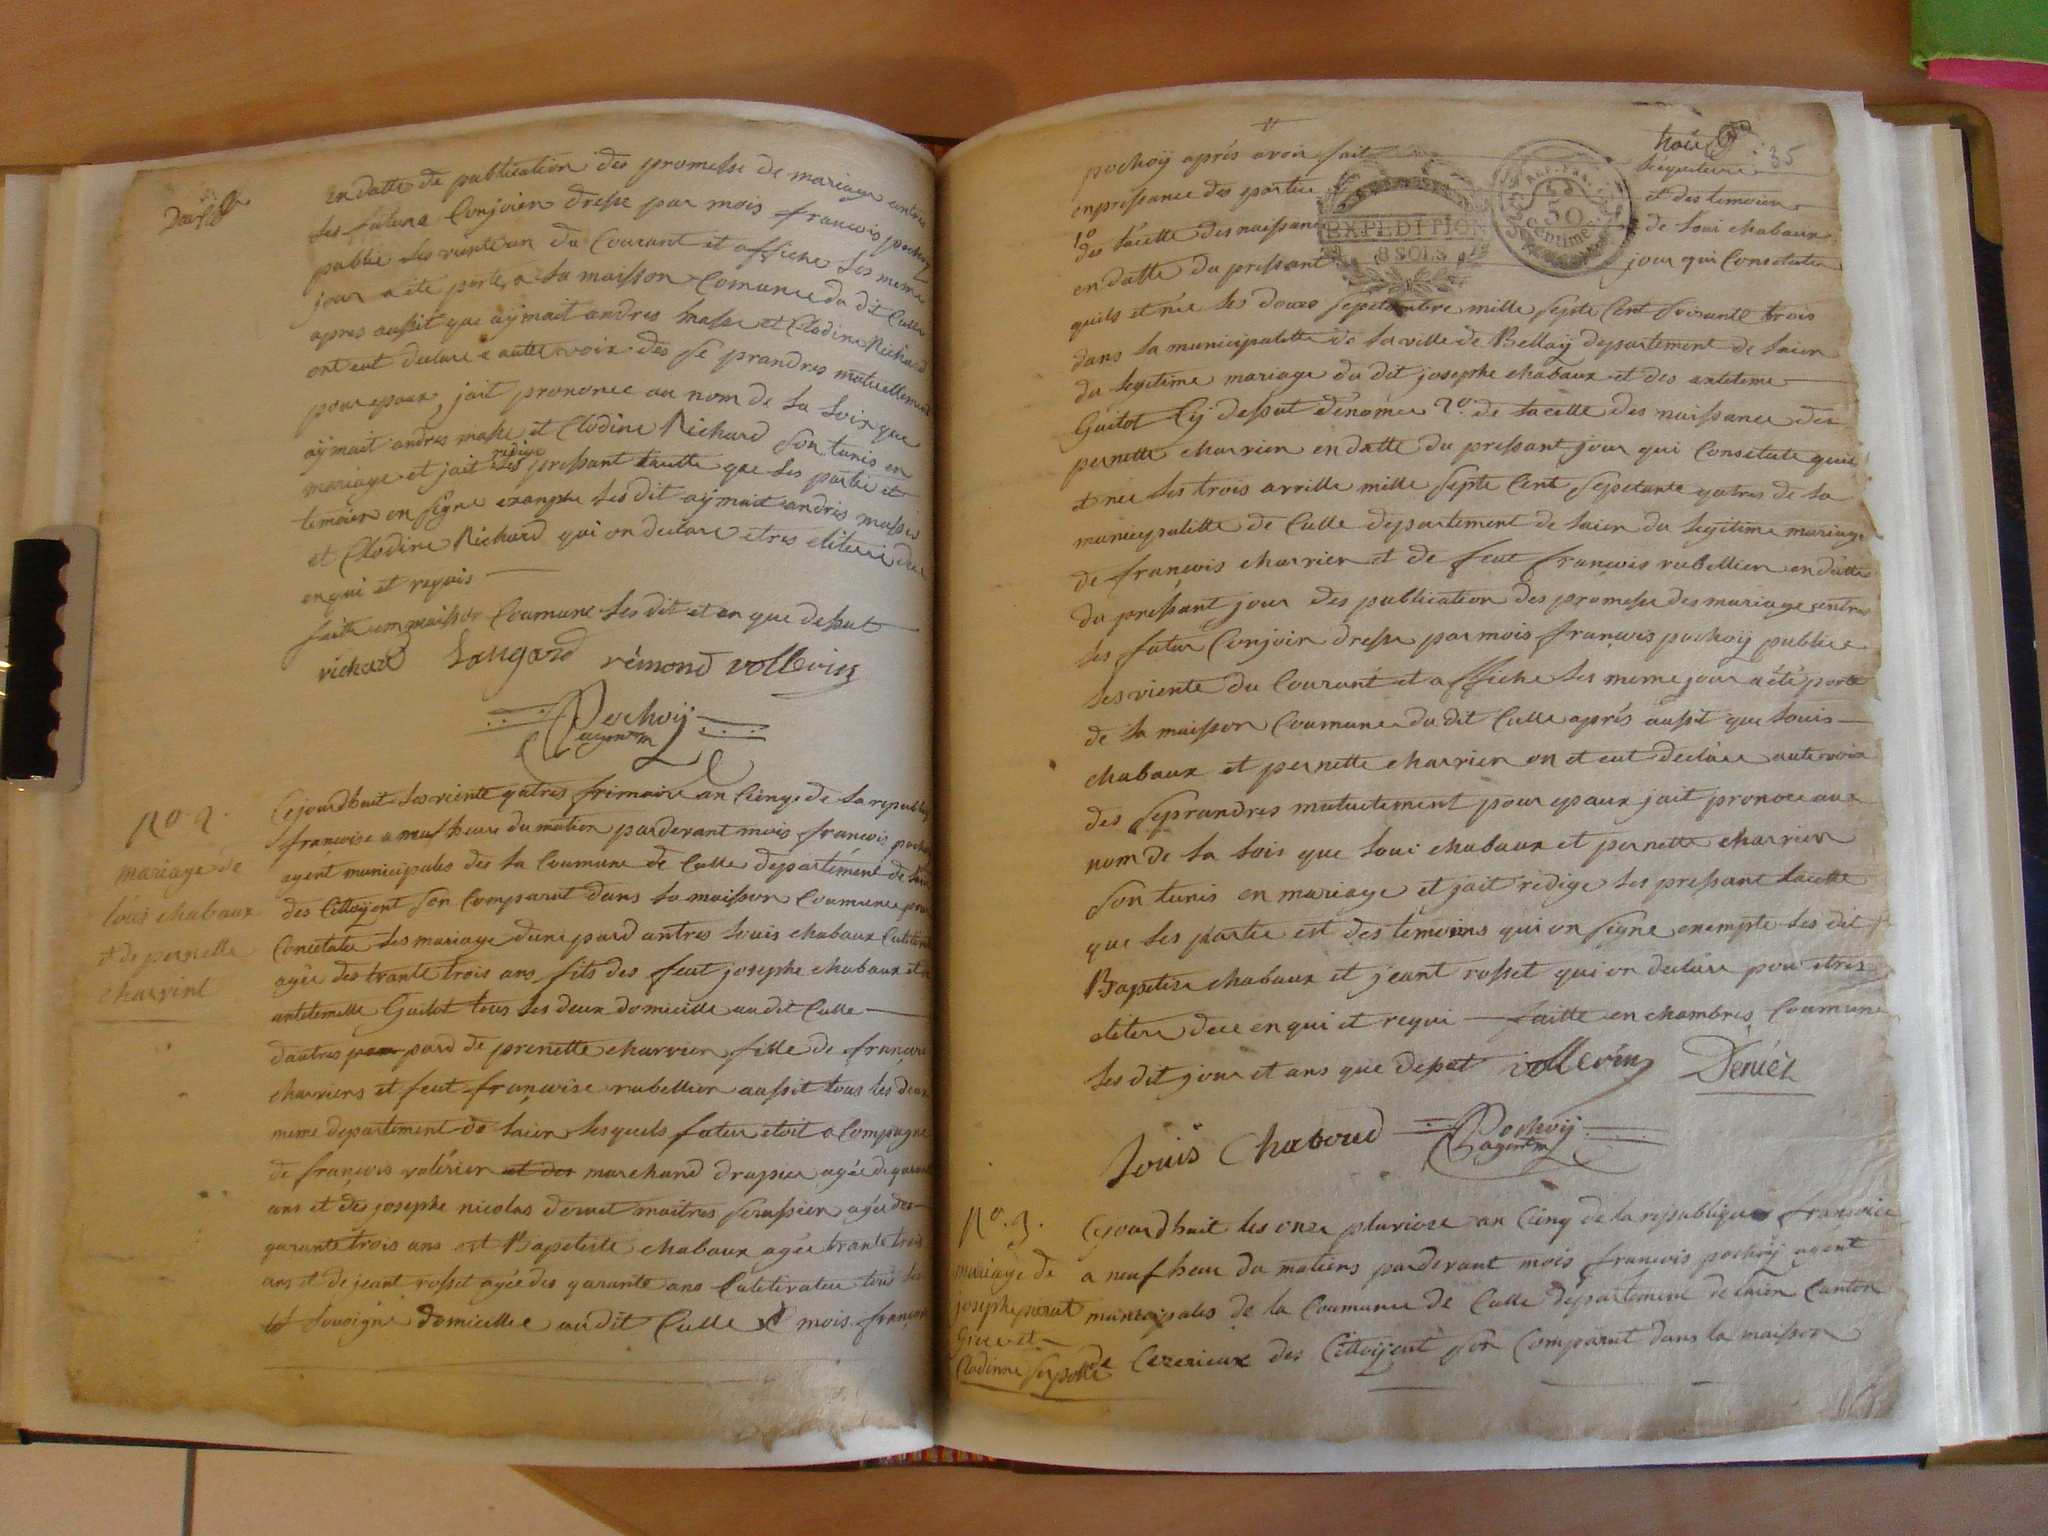 en datte de publication des promesse de mariage entre
les future Conjoien dresse par mois francois pochoÿ
publie les viente un du Courant et affiche les meme
jour a ete porte a la maisson Comunne du dit Culle
apres aussit que aÿmait andres masse et Clodine Richard
ont eut declare a aute voix des se prandres mutuellement
pour epaux, jait prononce au nom de la loix que
aÿmait andres masse et Clodine Richard Son tunis en
mariage et jait redige les pressant lacette que les partie et
temoien en signe exanpte les dit aÿmait andres masse
et Clodine Richard qui on declare etres eliterie dee
enqui et requis
faitte en maisson Coumune les dit et an que dessut
richard Laugard rémond vollerin
Pochoÿ
agent m
No. 2.
mariage de
loüis chabaux
et de pernette
charrint
Cejourdhuit les viente qatres frimaire an Cienq de la republiq
francoise a neuf heure du matien pardevant mois francois pochoÿ
agent municipales des la Coumune de Culle departement de laien
des Cittoÿent Son Comparut dans la maisson Coumune pour
Conetate les mariage dune pard antres Louis chabaux Cultivateur
agée des trante trois ans fils des feut josephe chabaux et
antetemelle Guitot tous les deux domicille au dit Culle
dautres pard de prenette charrier fille de francois
charriers et feut francoise rubellier aussit tous les deux
meme departement de laien lesquels futeu etoit a Compagne
de francois valérien et des marchand drapier agée de qarante
ans et des josephe nicolas dervet maitres serussier agée des
qarante trois ans et Bapetiste chabaux agée trante trois
ans et de jeant rosset agée des qarante ans Culetivateu tous les
domicillee audit Culle et mois francois
35
pochoÿ aprés avoir fait lèqueture
enpressance des partie et des temoien
1o des lacette des naissance de loui chabaux
en datte du pressant jour qui Consetate
quils et née les douze sepetembre mille septe Cent soixante trois
dans la municipalitte de la ville de Bellaÿ departement de laien
du legetime mariage du dit josephe chabaux et des anteteme
Guitot Cÿ dessut denomée 2o. de lacette des naissance des
pernette charrier en datte du pressant jour qui Consetate quil
et née les trois avrille mille septe Cent sepetante qatres de la
municipalitte de Culle departement de laien du legetime mariage
de francois charrier et de feut francois rubellier en datte
du pressant jour des publication des promesse des mariage entres
les futur Conjoin dresse par mois francois pochoÿ publiee
les viente du Courant et affiche les meme jour a été porte
de la maisson Coumune du dit Culle aprés aussit que Louis
chabaux et pernette charrier on et eut declare aute voix
des se prandres mutuelement pour epaux jait prononce aux
nom de la lois que Loui chabaux et pernette charrier
Son tunis en mariage et jait redige les pressant lacette
que les partie est des temoiens qui on signe exempte les dit
Bapetise chabaux et jeant rosset qui on declare pour etres
eliteri dee enqui et requi faitte en chambres Coumune
les dit jour et ans que dessut vollerin Deniér
Louis Chaboud Pochoÿ
agent m
EXPEDITION
8 SOLS
50
Centimes
No. 3.
mariage de
josephe
Clodinne
Cejourdhuit les onze pluviose an Cienq de la republiques francoice
a neuf heur du matiens pardevant mois francois pochoÿ agent
municipales de la Coumune de Culle departement de laien Canton
de Cezerieux des Cittoÿent son Comparut dans la maisson